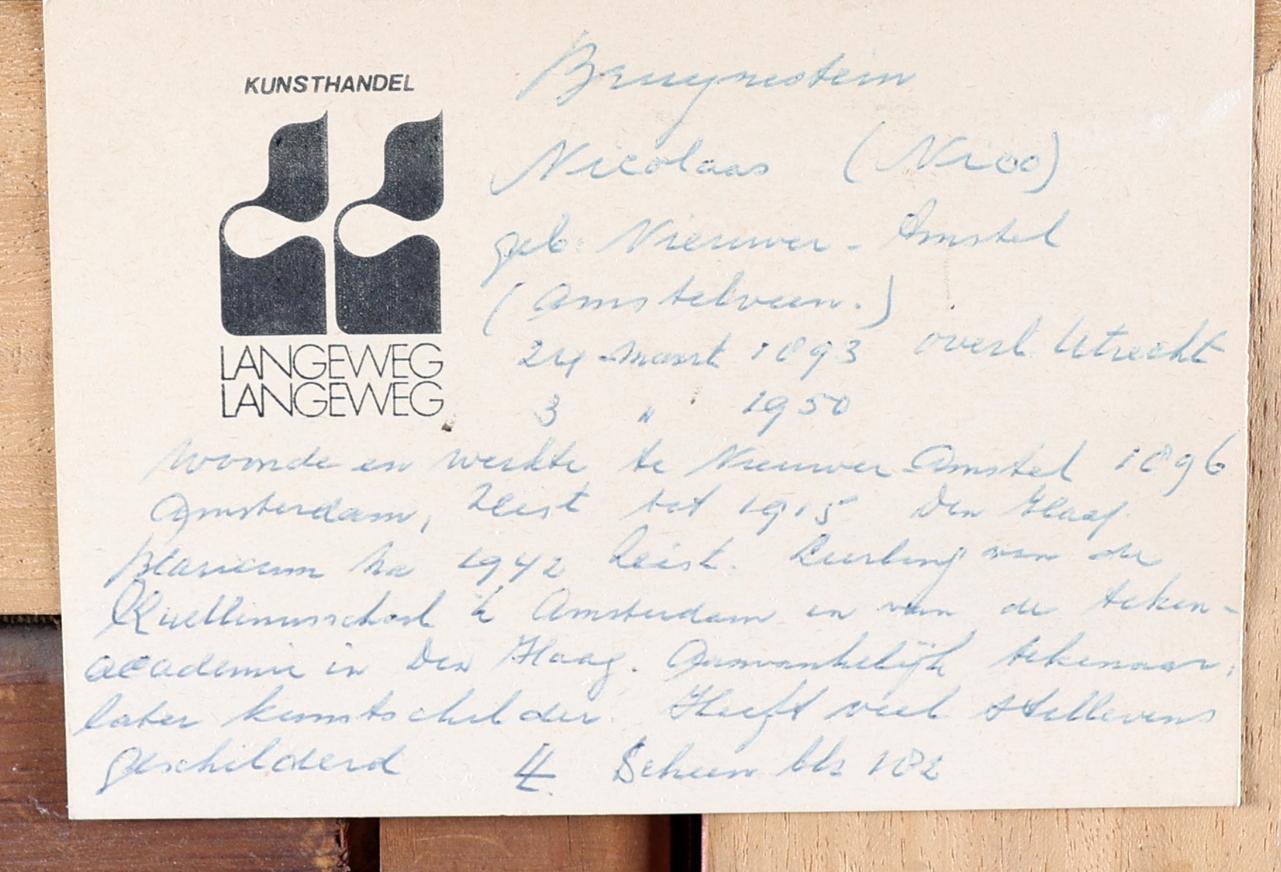 KUNSTHANDEL
LANGEWEG
LANGEWEG
Bruynestein
Nicolaas (Nico)
geb. Nieuwer-Amstel
(Amstelveen.)
24 maart 1893 overl. Utrecht
3 " 1950
Woonde en werkte te Nieuwer Amstel 1896
Amsterdam, Zeist tot 1915 Den Haag
Blaricum na 1942 Zeist. Leerling van de
Quellinusschool te Amsterdam en van de teken-
academie in Den Haag. Aanvankelijk tekenaar,
later kunstschilder Heeft veel stillevens
geschilderd Scheen blz 182